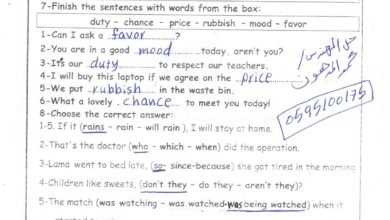 7-Finish the sentences with words from the box:
duty – chance – price - rubbish - mood - favor
1-Can I ask a favor ?
2-You are in a good mood today, aren't you?
3-It's our duty to respect our teachers.
4-I will buy this laptop if we agree on the price
5-We put rubbish in the waste bin.
6-What a lovely chance to meet you today!
0595100175
8-Choose the correct answer:
1-5. If it (rains - rain - will rain ), I will stay at home.
2-That's the doctor (who - which - when) did the operation.
3-Lama went to bed late, (so- since-because) she got tired in the morning
4-Children like sweets, (don't they - do they - aren't they)?
5-The match (was watching - was watched-was being watched) when it